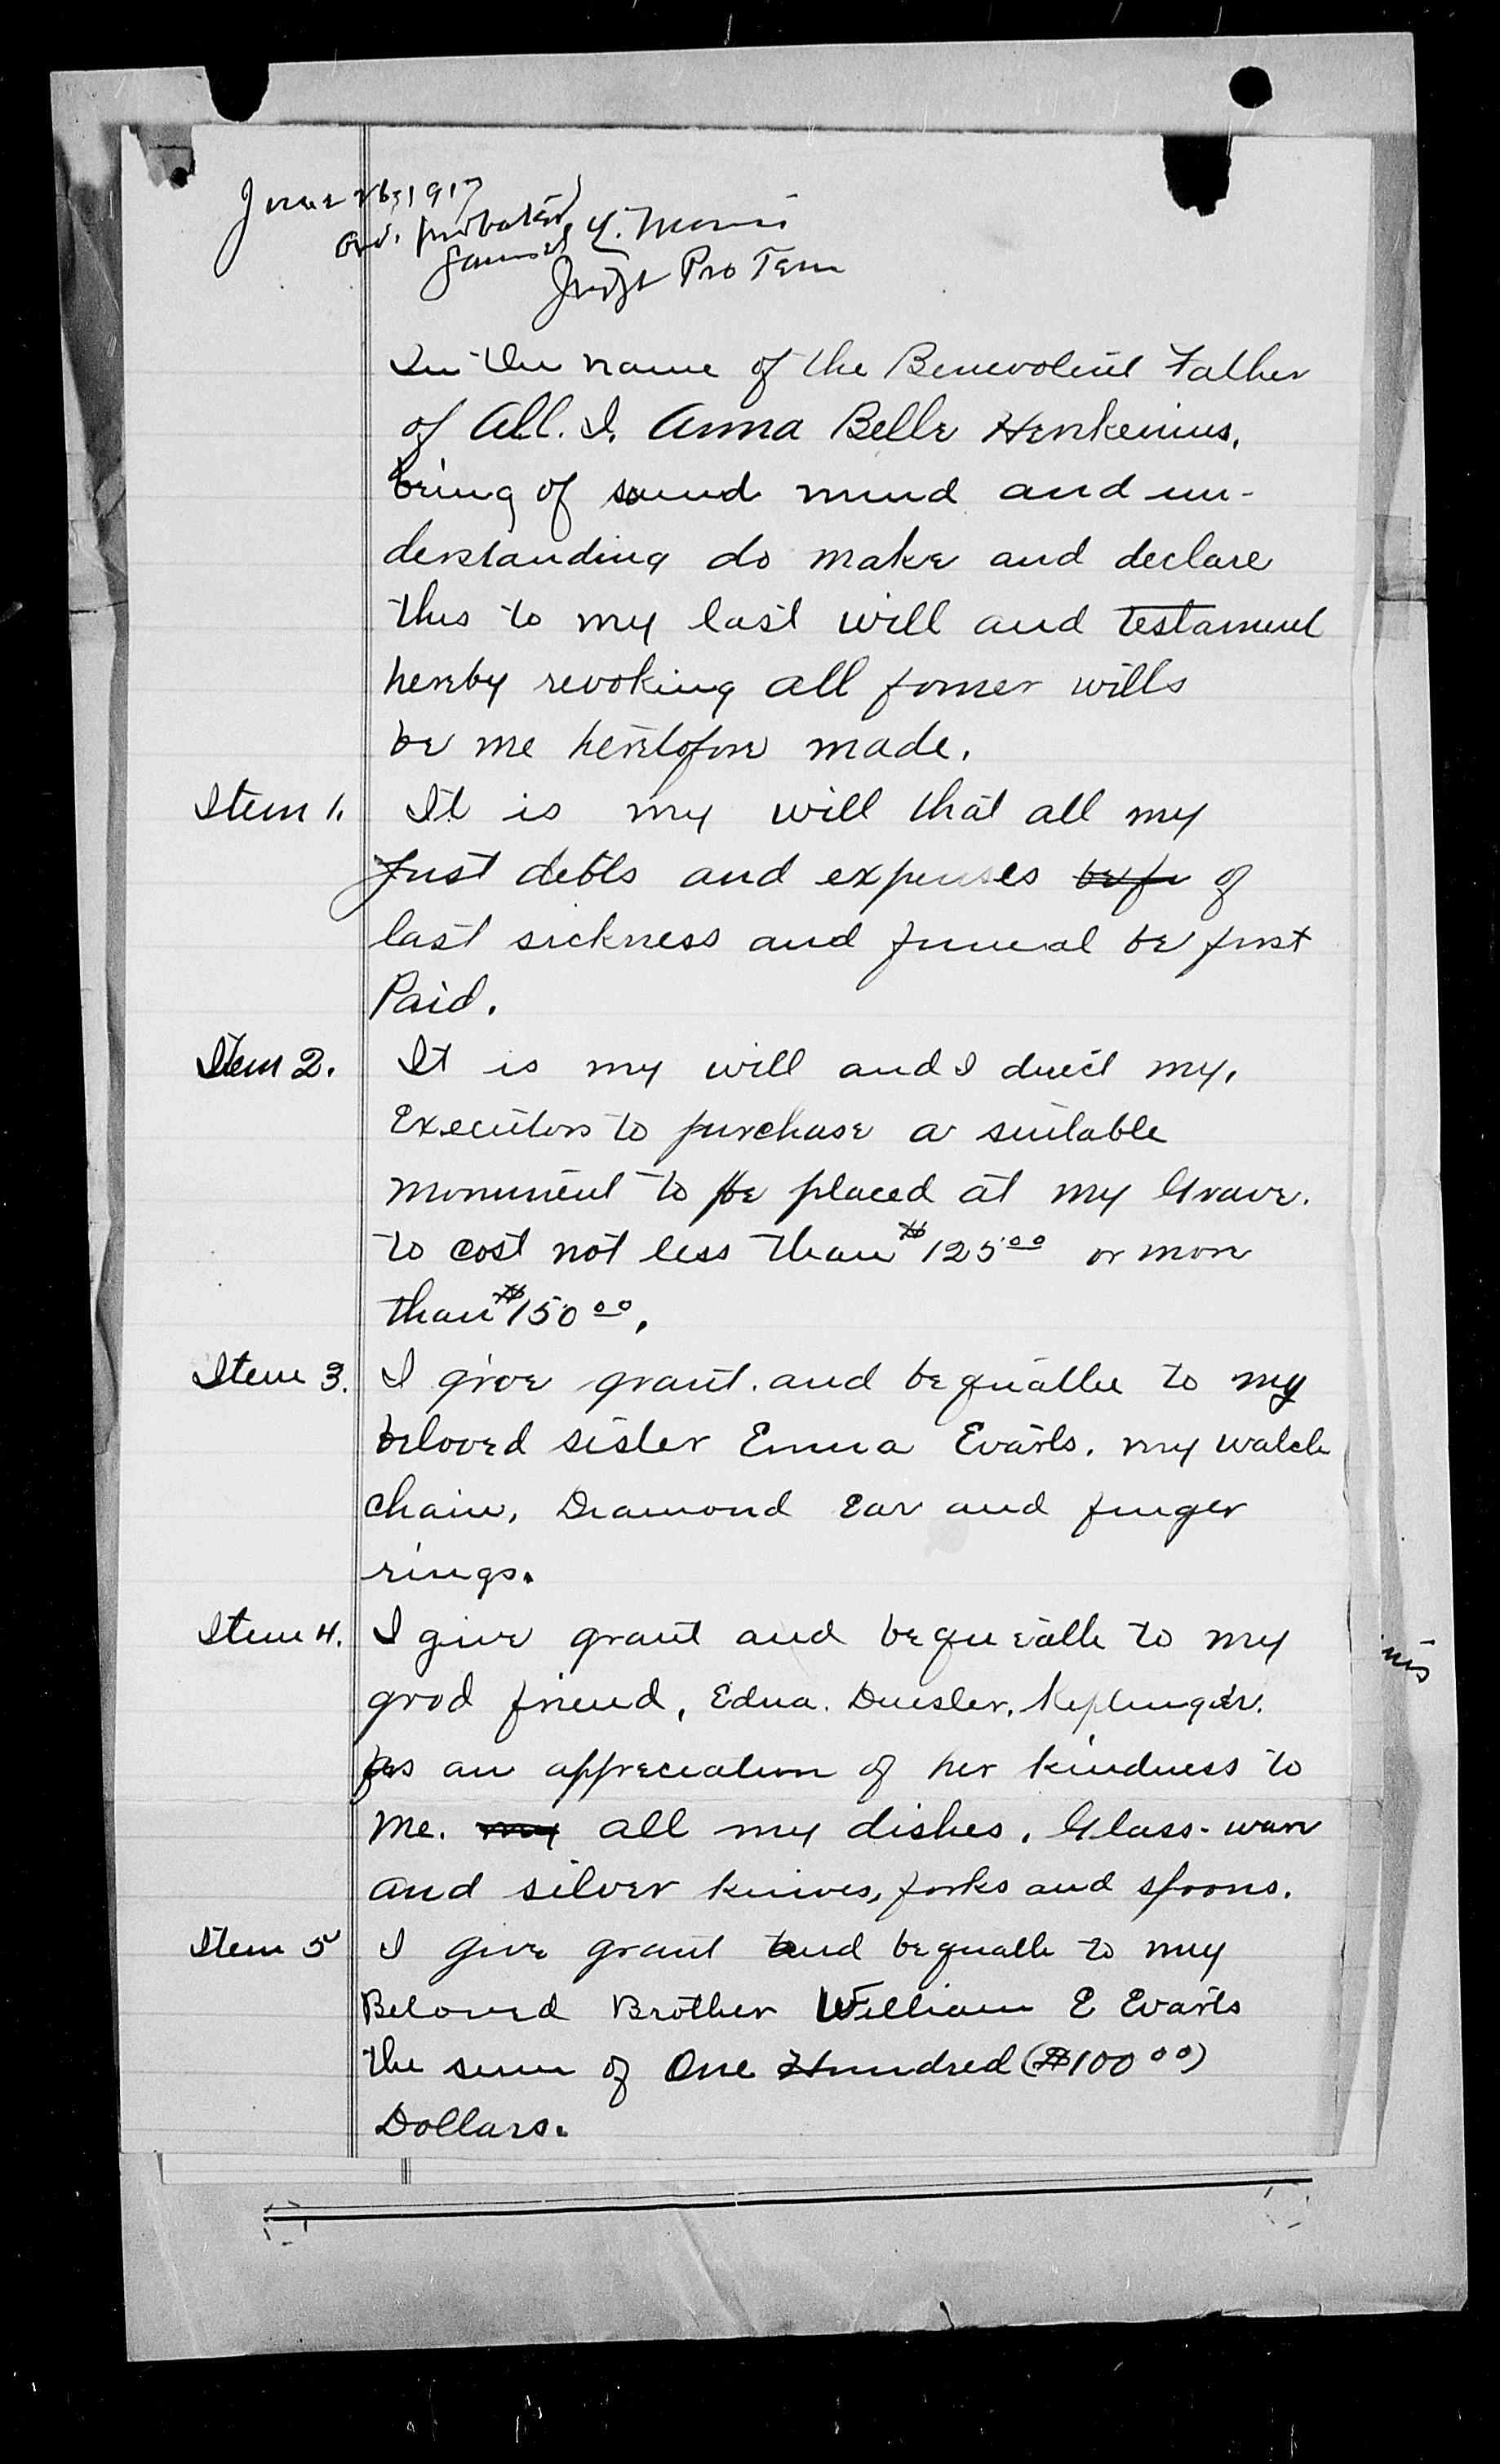 June 26, 1917
Ord. probated
Samuel L. Morris
Judge Pro Tem
In the name of the Benevolent Father
of All. I. Anna Belle Henkenius,
being of sound mind and un-
derstanding do make and declare
this to my last will and testament
hereby revoking all former wills
be me heretofore made.
Item 1. It is my will that all my
Just debts and expenses of
last sickness and funeral be first
Paid.
Item 2. It is my will and I direct my,
Executors to purchase a suitable
monument to be placed at my Grave.
to cost not less than $125.00 or more
than $150 00.
Item 3. I give grant. and bequathe to my
beloved sister Emma Evarts. my watch
chain, Diamond Ear and finger
rings.
Item 4. I give grant and bequeathe to my
good friend, Edna. Duesler. Keplinger.
as an appreciation of her kindness to
me. my all my dishes. Glass-ware
and silver knives, forks and spoons.
Item 5 I give grant and bequathe to my
Beloved Brother William E Evarts
the sum of One Hundred ($100 00)
Dollars.